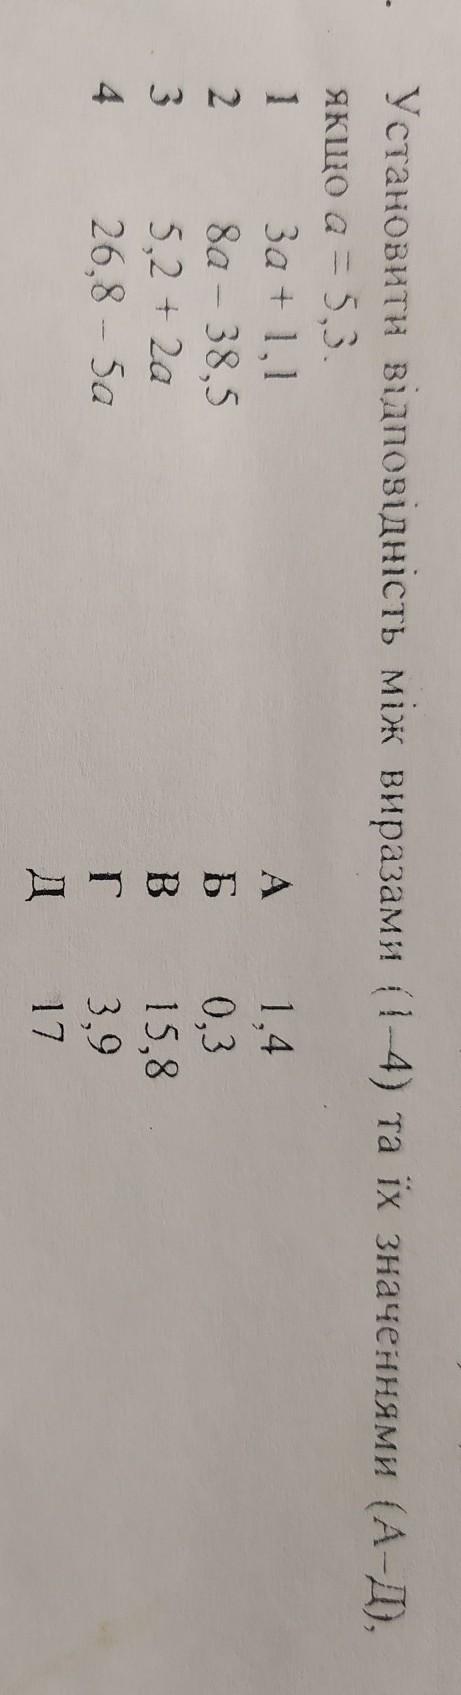 Установити відповідність між виразами (1–4) та їх значеннями (А–Д),
якщо a = 5,3.
1 3a + 1,1 А 1,4
2 8a – 38,5 Б 0,3
3 5,2 + 2a В 15,8
4 26,8 – 5a Г 3,9
Д 17